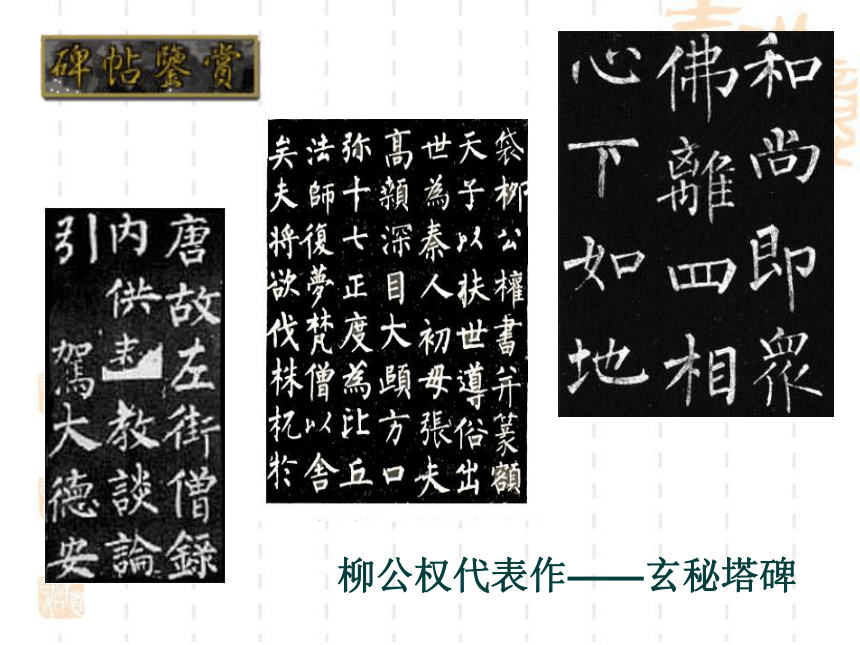 碑帖鑒賞
唐故左街僧録
内供教談論
引駕大德安
袋柳公權書并篆額
天子以扶世導俗出
世為秦人初母張夫
高顙深目大頤方口
弥十七正度為比丘
法師復夢梵僧以舍
矣夫将欲伐株杌於
和尚即眾
佛離四相
心下如地
柳公权代表作——玄秘塔碑